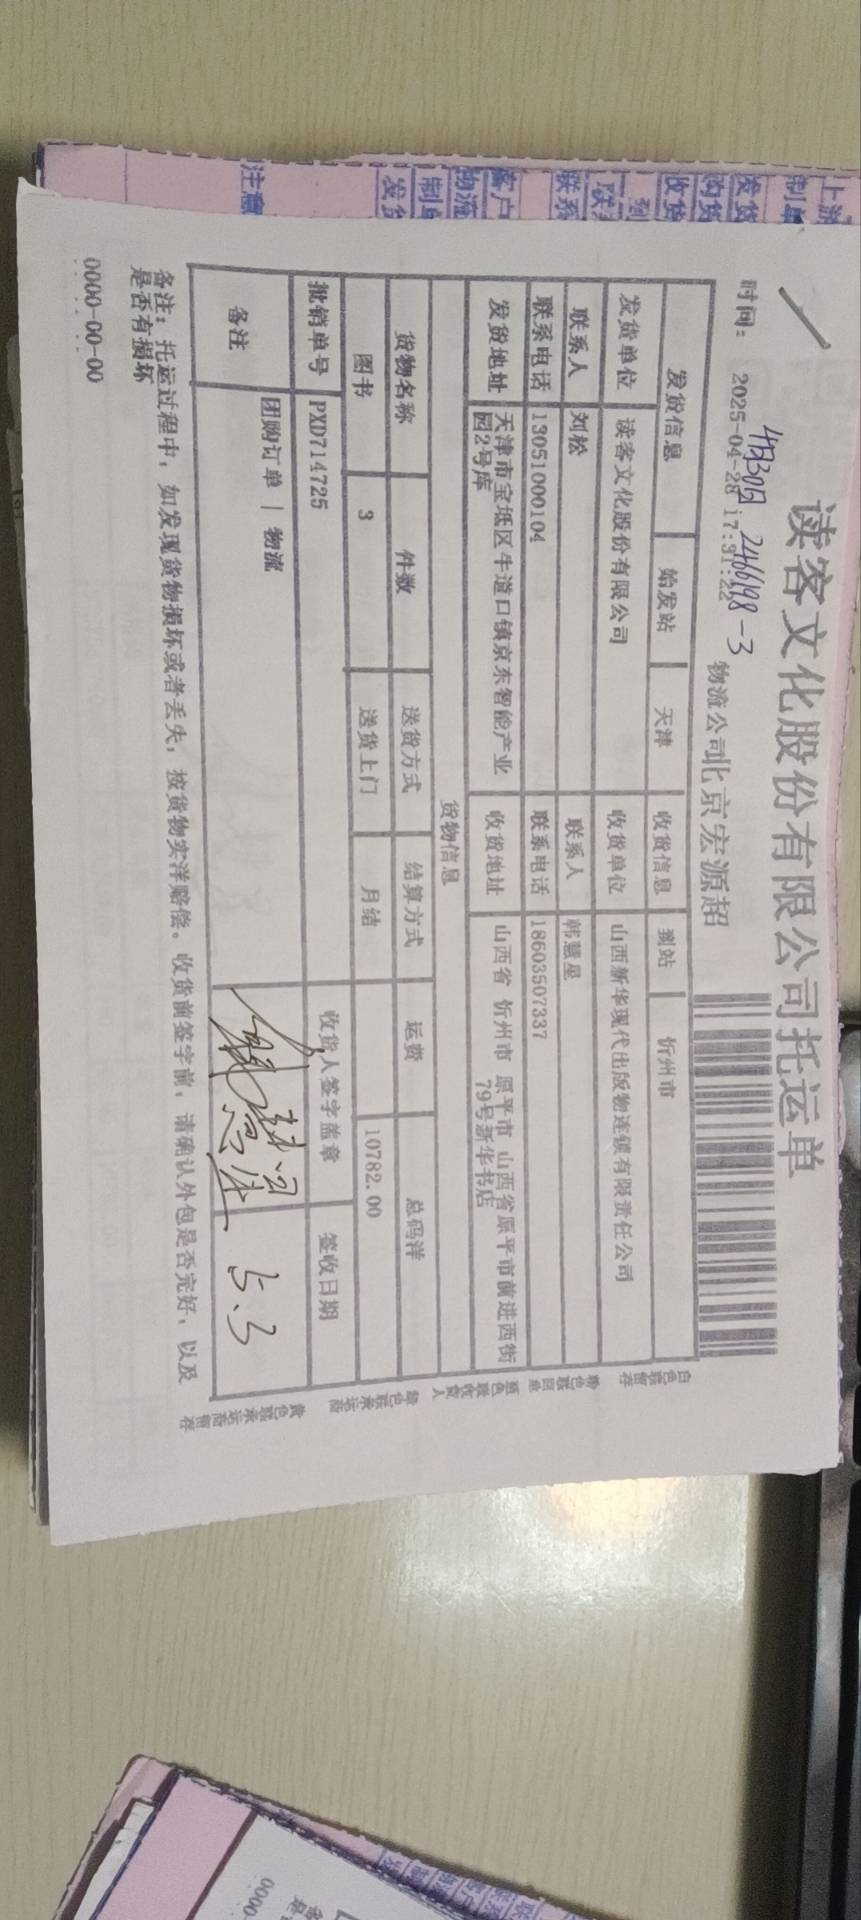 读客文化股份有限公司托运单
时间： 2025-04-28 17:31:22 物流公司北京宏源超
2466198-3
发货信息 始发站 天津 收货信息 到站 忻州市
发货单位 读客文化股份有限公司 收货单位 山西新华现代出版物连锁有限责任公司
联系人 刘松 联系人 韩慧星
联系电话 13051000104 联系电话 18603507337
发货地址 天津市宝坻区牛道口镇京东智能产业园2号库 收货地址 山西省 忻州市 原平市 山西省原平市前进西街79号新华书店
货物信息
货物名称 件数 送货方式 结算方式 运费 总码洋
图书 3 送货上门 月结 10782.00
批销单号 PXD714725 收货人签字盖章 签收日期
备注 团购订单 | 物流 5.3
备注：托运过程中，如发现货物损坏或者丢失，按货物实洋赔偿。收货前签字前，请确认外包是否完好，以及
是否有损坏
0000-00-00
白色联留存
粉色联回单
蓝色联收货人
绿色联承运商
黄色联承运商留存
上游
制单
发货
购货
收货
到
联系
客户
物流
制单
发货
注意